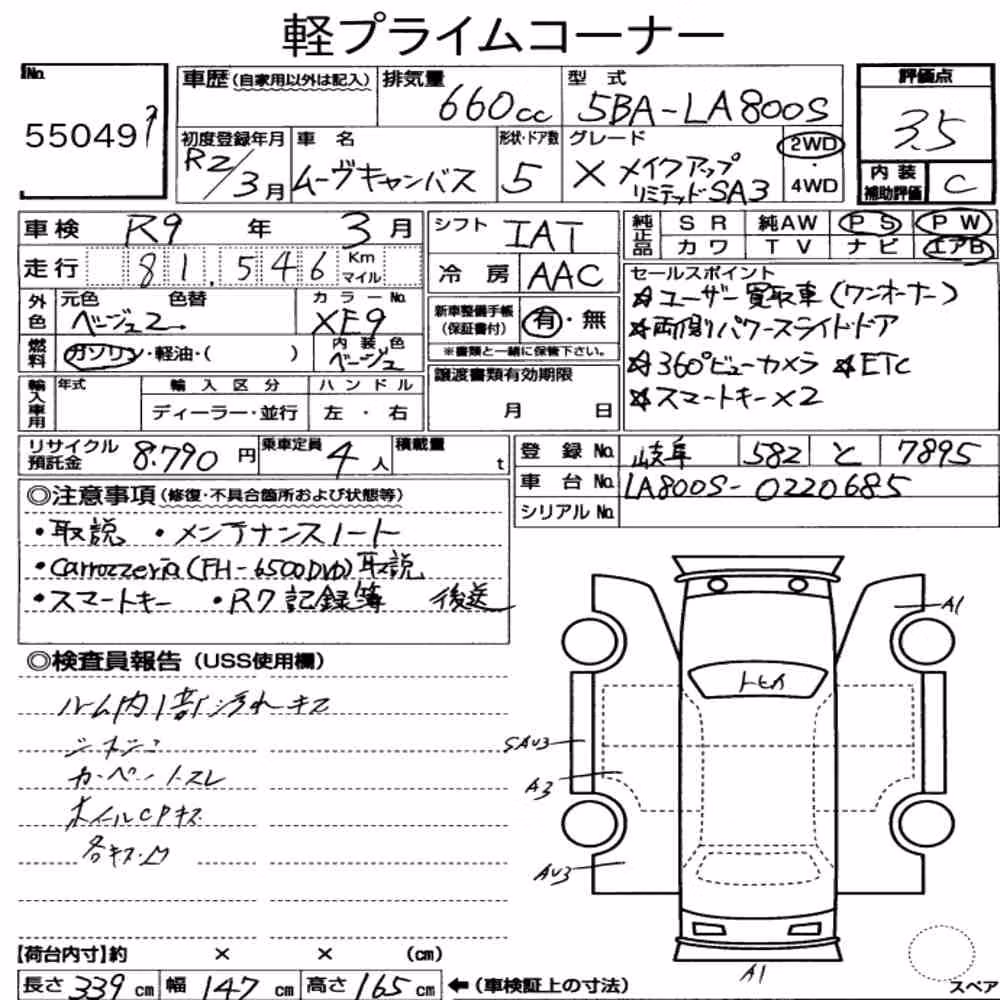 軽プライムコーナー
No. 55049
車歴(自家用以外は記入) 排気量 660cc 型式 5BA-LA800S 評価点 3.5
初度登録年月 R2/3月 車名 ムーヴキャンバス 形状・ドア数 5 グレード X メイクアップリミテッドSA3 2WD・4WD 内装補助評価 C
車検 R9年 3月 シフト IAT 純正品 SR 純AW PS PW
カワ TV ナビ エアB
走行 81,546 Km マイル 冷房 AAC
セールスポイント
☆ユーザー買取車(ワンオーナー)
☆両側パワースライドドア
☆360°ビューカメラ ☆ETC
☆スマートキー×2
外色 元色 ベージュ2 色替 カラーNo. XE9 新車整備手帳(保証書付) 有・無
※書類と一緒に保管下さい。
燃料 ガソリン・軽油・( ) 内装色 ベージュ
譲渡書類有効期限 月 日
輸入車用 年式 輸入区分 ハンドル
ディーラー・並行 左・右
リサイクル預託金 8.790円 乗車定員 4人 積載量 t
登録No. 岐阜 582 と 7895
車台No. LA800S-0220685
シリアルNo.
◎注意事項(修復・不具合箇所および状態等)
・取説 ・メンテナンスノート
・carrozzeria(FH-6500DVD)取説
・スマートキー ・R7記録簿 後送
◎検査員報告(USS使用欄)
ルーム内1部汚れキズ
カーペットスレ
ホイールCPキズ
各キズ凹
トヒカ
A1
SAU3
A3
AU3
A1
スペア
【荷台内寸】約 × × (cm)
長さ 339cm 幅 147cm 高さ 165cm ←(車検証上の寸法)